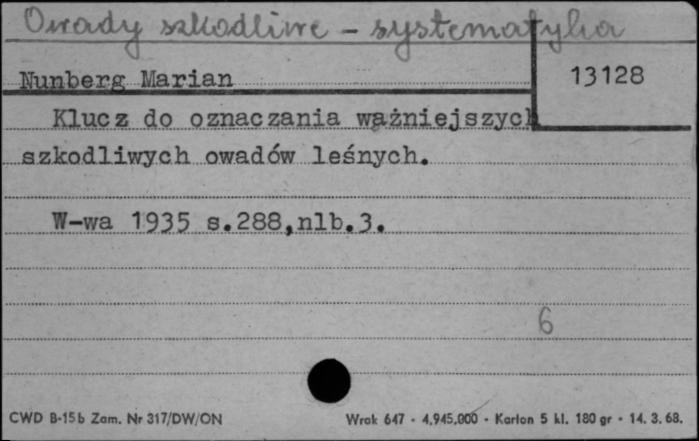 Owady szkodliwe - systematyka
Nunberg Marian
13128
Klucz do oznaczania ważniejszych
szkodliwych owadów leśnych.
W-wa 1935 s.288,nlb.3.
6
CWD B-15b Zam. Nr 317/DW/ON
Wrok 647 - 4,945,000 - Karton 5 kl. 180 gr - 14. 3. 68.